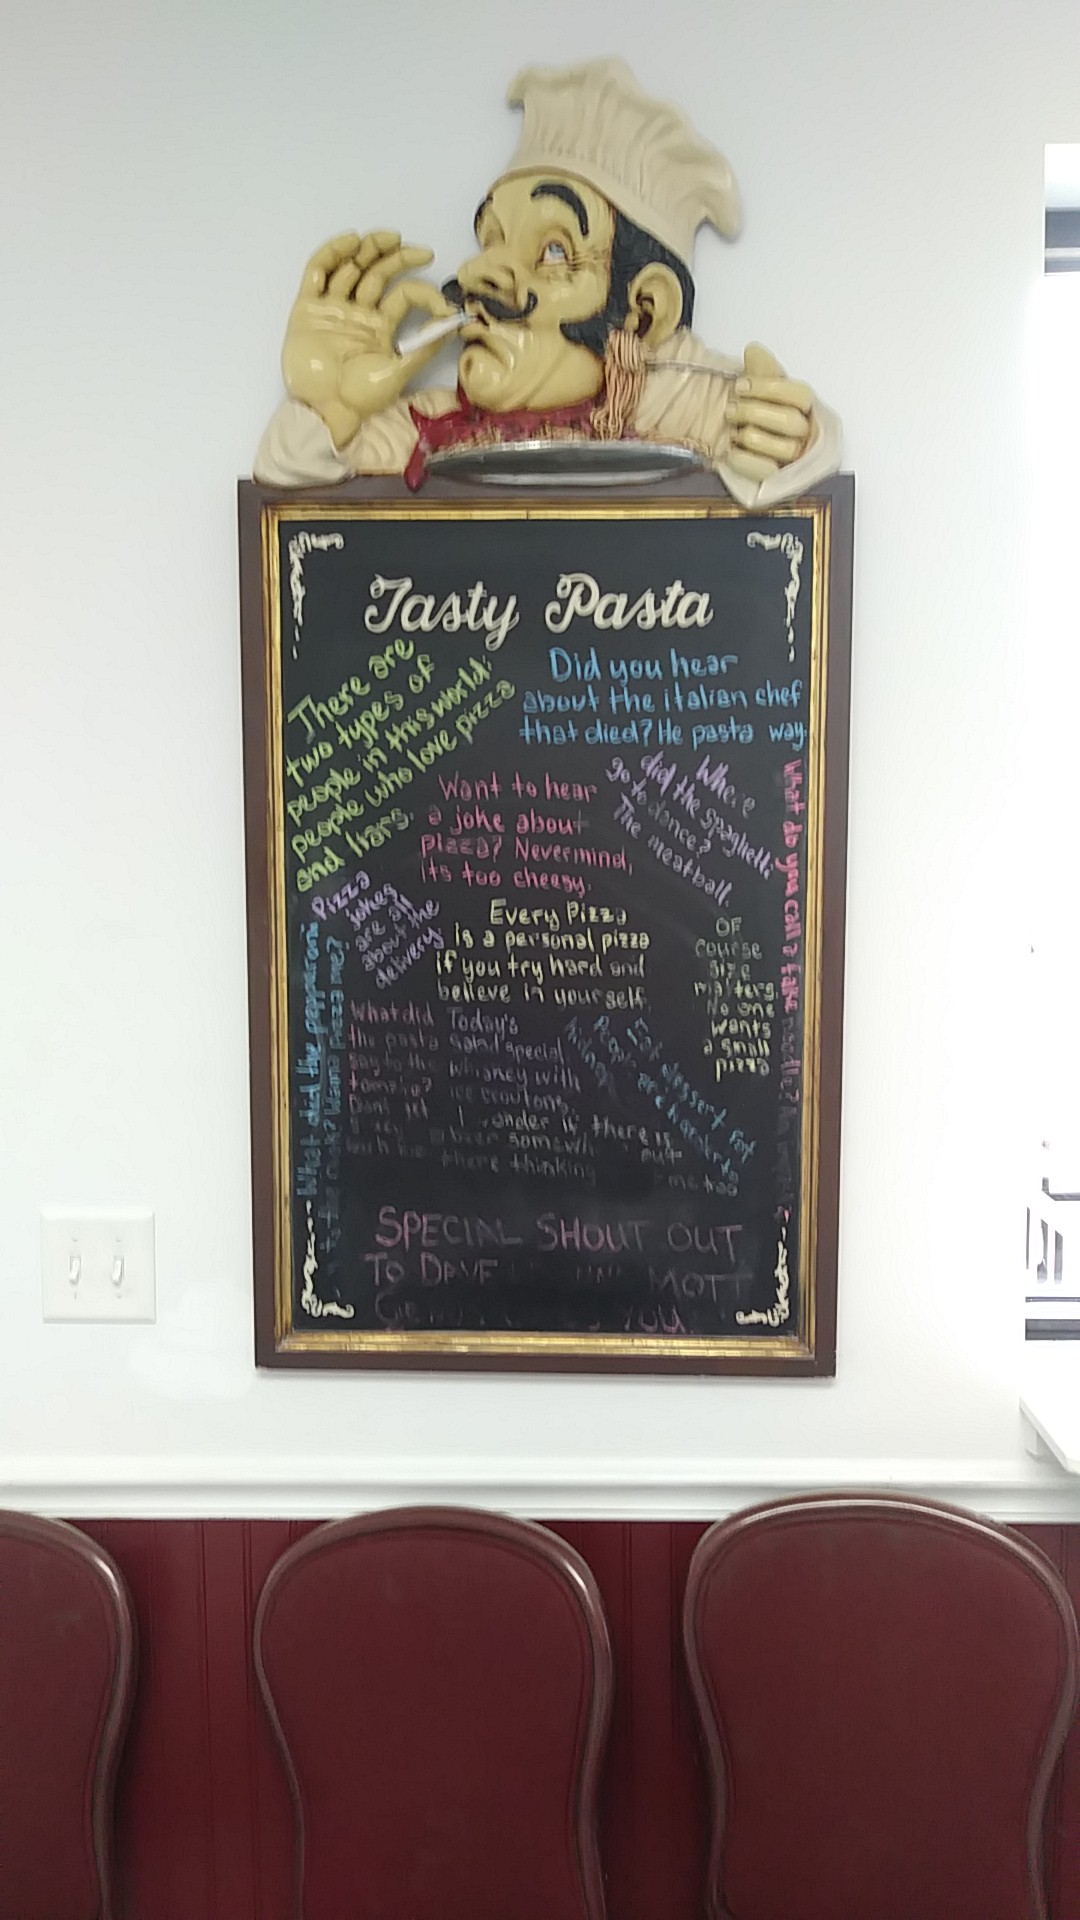 Tasty Pasta
There are
two types of
people in this world:
people who love pizza
and liars.
Did you hear
about the italian chef
that died? He pasta way.
Want to hear
a joke about
pizza? Nevermind,
it's too cheesy.
Where
did the spaghetti
go to dance?
The meatball.
What do you call a fake noodle? An
Pizza
jokes
are all
about the
delivery.
Every Pizza
is a personal pizza
if you try hard and
believe in yourself.
OF
course
size
matters.
No one
wants
a small
pizza
What did the pepperoni
to the cook? Wanna pizza me?
What did
the pasta
say to the
tomato?
Dont get
Today's
salad special
whiskey with
ice croutons.
Eat dessert
People are
I wonder if there is
beer somewh out
there thinking
me too
SPECIAL SHOUT OUT
TO DAVE MOTT
YOU